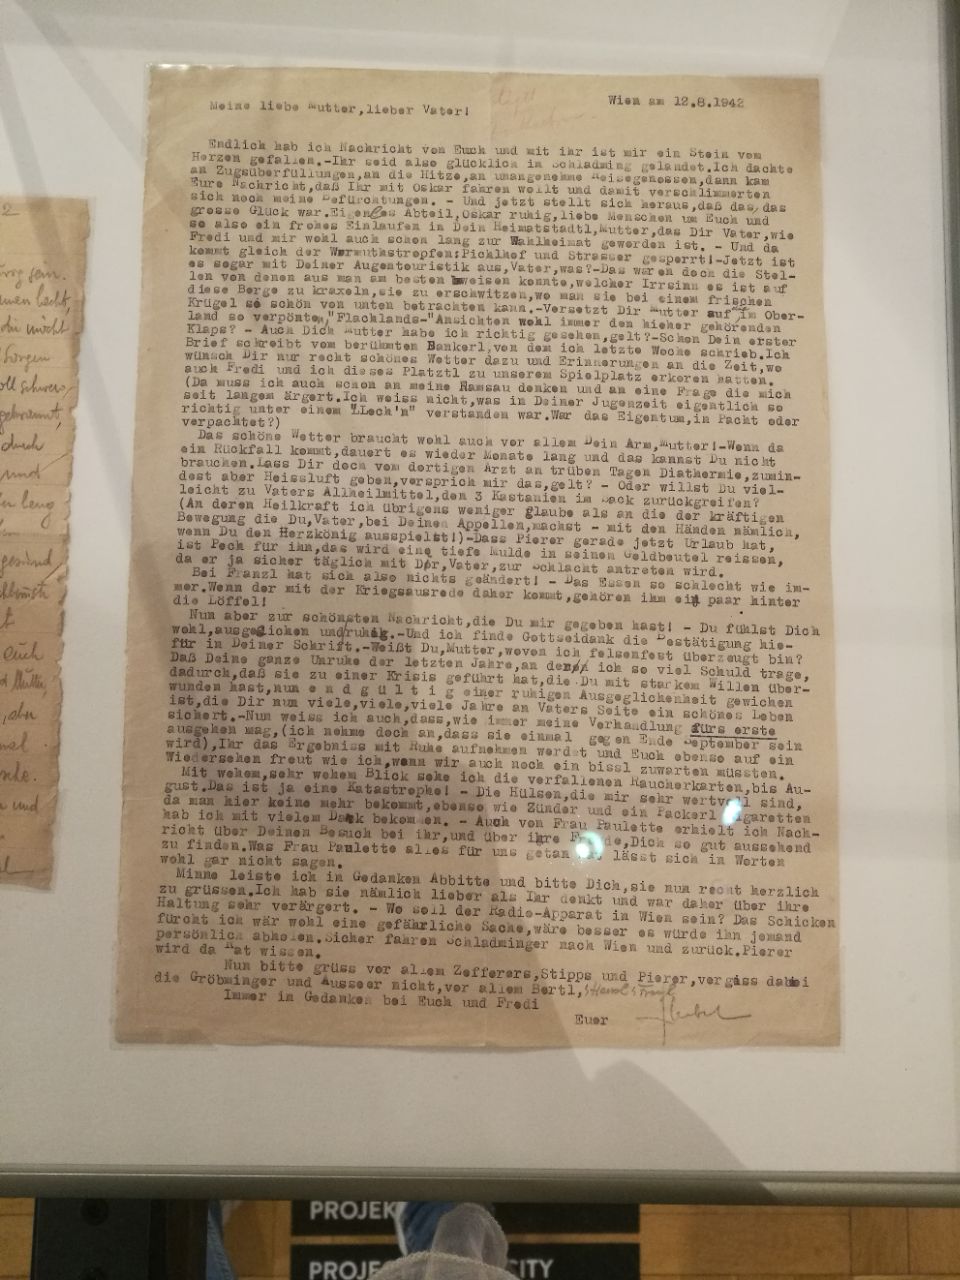 Wien am 12.8.1942
Meine liebe Mutter,lieber Vater!
Endlich hab ich Nachricht von Euch und mit ihr ist mir ein Stein vom
Herzen gefallen.-Ihr seid also glücklich in Schladming gelandet.Ich dachte
an Zugsüberfüllungen,an die Hitze,an unangenehme Reisegenossen,dann kam
Eure Nachricht,daß Ihr mit Oskar fahren wollt und damit verschlimmerten
sich noch meine Befürchtungen. - Und jetzt stellt sich heraus,daß das,das
grosse Glück war.Eigenes Abteil,Oskar ruhig,liebe Menschen um Euch und
so also ein frohes Einlaufen in Dein Heimatstadtl,Mutter,das Dir Vater,wie
Fredi und mir wohl auch schon lang zur Wahlheimat geworden ist. - Und da
kommt gleich der Wermuthstropfen:Pichlhof und Strasser gesperrt!-Jetzt ist
es sogar mit Deiner Augentouristik aus,Vater,was?-Das waren doch die Stel-
len von denen aus man am besten beweisen konnte,welcher Irrsinn es ist auf
diese Berge zu kraxeln,sie zu erschwitzen,wo man sie bei einem frischen
Krügel so schön von unten betrachten kann.-Versetzt Dir Mutter auf im Ober-
land so verpönten,"Flachlands-"Ansichten wohl immer den hieher gehörenden
Klaps? - Auch Dich Mutter habe ich richtig gesehen,gelt?-Schon Dein erster
Brief schreibt vom berühmten Bankerl,von dem ich letzte Woche schrieb.Ich
wünsch Dir nur recht schönes Wetter dazu und Erinnerungen an die Zeit,wo
auch Fredi und ich dieses Platztl zu unserem Spielplatz erkoren hatten.
(Da muss ich auch schon an meine Ramsau denken und an eine Frage die mich
seit langem ärgert.Ich weiss nicht,was in Deiner Jugenzeit eigentlich so
richtig unter einem "Lech'n" verstanden war.War das Eigentum,in Pacht oder
verpachtet?)
Das schöne Wetter braucht wohl auch vor allem Dein Arm,Mutter!-Wenn da
ein Rückfall kommt,dauert es wieder Monate lang und das kannst Du nicht
brauchen.Lass Dir doch vom dortigen Arzt an trüben Tagen Diathermie,zumin-
dest aber Heissluft geben,versprich mir das,gelt? - Oder willst Du viel-
leicht zu Vaters Allheilmittel,den 3 Kastanien im Sack zurückgreifen?
(An deren Heilkraft ich übrigens weniger glaube als an die der kräftigen
Bewegung die Du,Vater,bei Deinen Appellen,machst - mit den Händen nämlich,
wenn Du den Herzkönig ausspielst!)-Dass Pierer gerade jetzt Urlaub hat,
ist Pech für ihn,das wird eine tiefe Mulde in seinen Geldbeutel reissen,
da er ja sicher täglich mit Dir,Vater,zur Schlacht antreten wird.
Bei Franzl hat sich also nichts geändert! - Das Essen so schlecht wie im-
mer.Wenn der mit der Kriegsausrede daher kommt,gehören ihm ein paar hinter
die Löffel!
Nun aber zur schönsten Nachricht,die Du mir gegeben hast! - Du fühlst Dich
wohl,ausgeglichen und ruhig.-Und ich finde Gottseidank die Bestätigung hie-
für in Deiner Schrift.-Weißt Du,Mutter,wovon ich felsenfest überzeugt bin?
Daß Deine ganze Unruhe der letzten Jahre,an denen ich so viel Schuld trage,
dadurch,daß sie zu einer Krisis geführt hat,die Du mit starkem Willen über-
wunden hast,nun e n d g ü l t i g einer ruhigen Ausgeglichenheit gewichen
ist,die Dir nun viele,viele,viele Jahre an Vaters Seite ein schönes Leben
sichert.-Nun weiss ich auch,dass,wie immer meine Verhandlung fürs erste
ausgehen mag,(ich nehme doch an,dass sie einmal gegen Ende September sein
wird),Ihr das Ergebniss mit Ruhe aufnehmen werdet und Euch ebenso auf ein
Wiedersehen freut wie ich,wenn wir auch noch ein bissl zuwarten müssten.
Mit wehem,sehr wehem Blick sehe ich die verfallenen Raucherkarten,bis Au-
gust.Das ist ja eine Katastrophe! - Die Hülsen,die mir sehr wertvoll sind,
da man hier keine mehr bekommt,ebenso wie Zünder und ein Packerl Zigaretten
hab ich mit vielem Dank bekommen. - Auch von Frau Paulette erhielt ich Nach-
richt über Deinen Besuch bei ihr,und über ihre Freude,Dich so gut aussehend
zu finden.Was Frau Paulette alles für uns getan hat lässt sich in Worten
wohl gar nicht sagen.
Minne leiste ich in Gedanken Abbitte und bitte Dich,sie nun recht herzlich
zu grüssen.Ich hab sie nämlich lieber als Ihr denkt und war daher über ihre
Haltung sehr verärgert. - Wo soll der Radio-Apparat in Wien sein? Das Schicken
fürcht ich wär wohl eine gefährliche Sache,wäre besser es würde ihn jemand
persönlich abholen.Sicher fahren Schladminger nach Wien und zurück.Pierer
wird da Rat wissen.
Nun bitte grüss vor allem Zefferers,Stipps und Pierer,vergiss dabei
die Gröbminger und Ausseer nicht,vor allem Bertl,
Immer in Gedanken bei Euch und Fredi
Euer
2
gern.
Sorgen
durch
und
gesund
euch
und
PROJEK
PROJE CITY